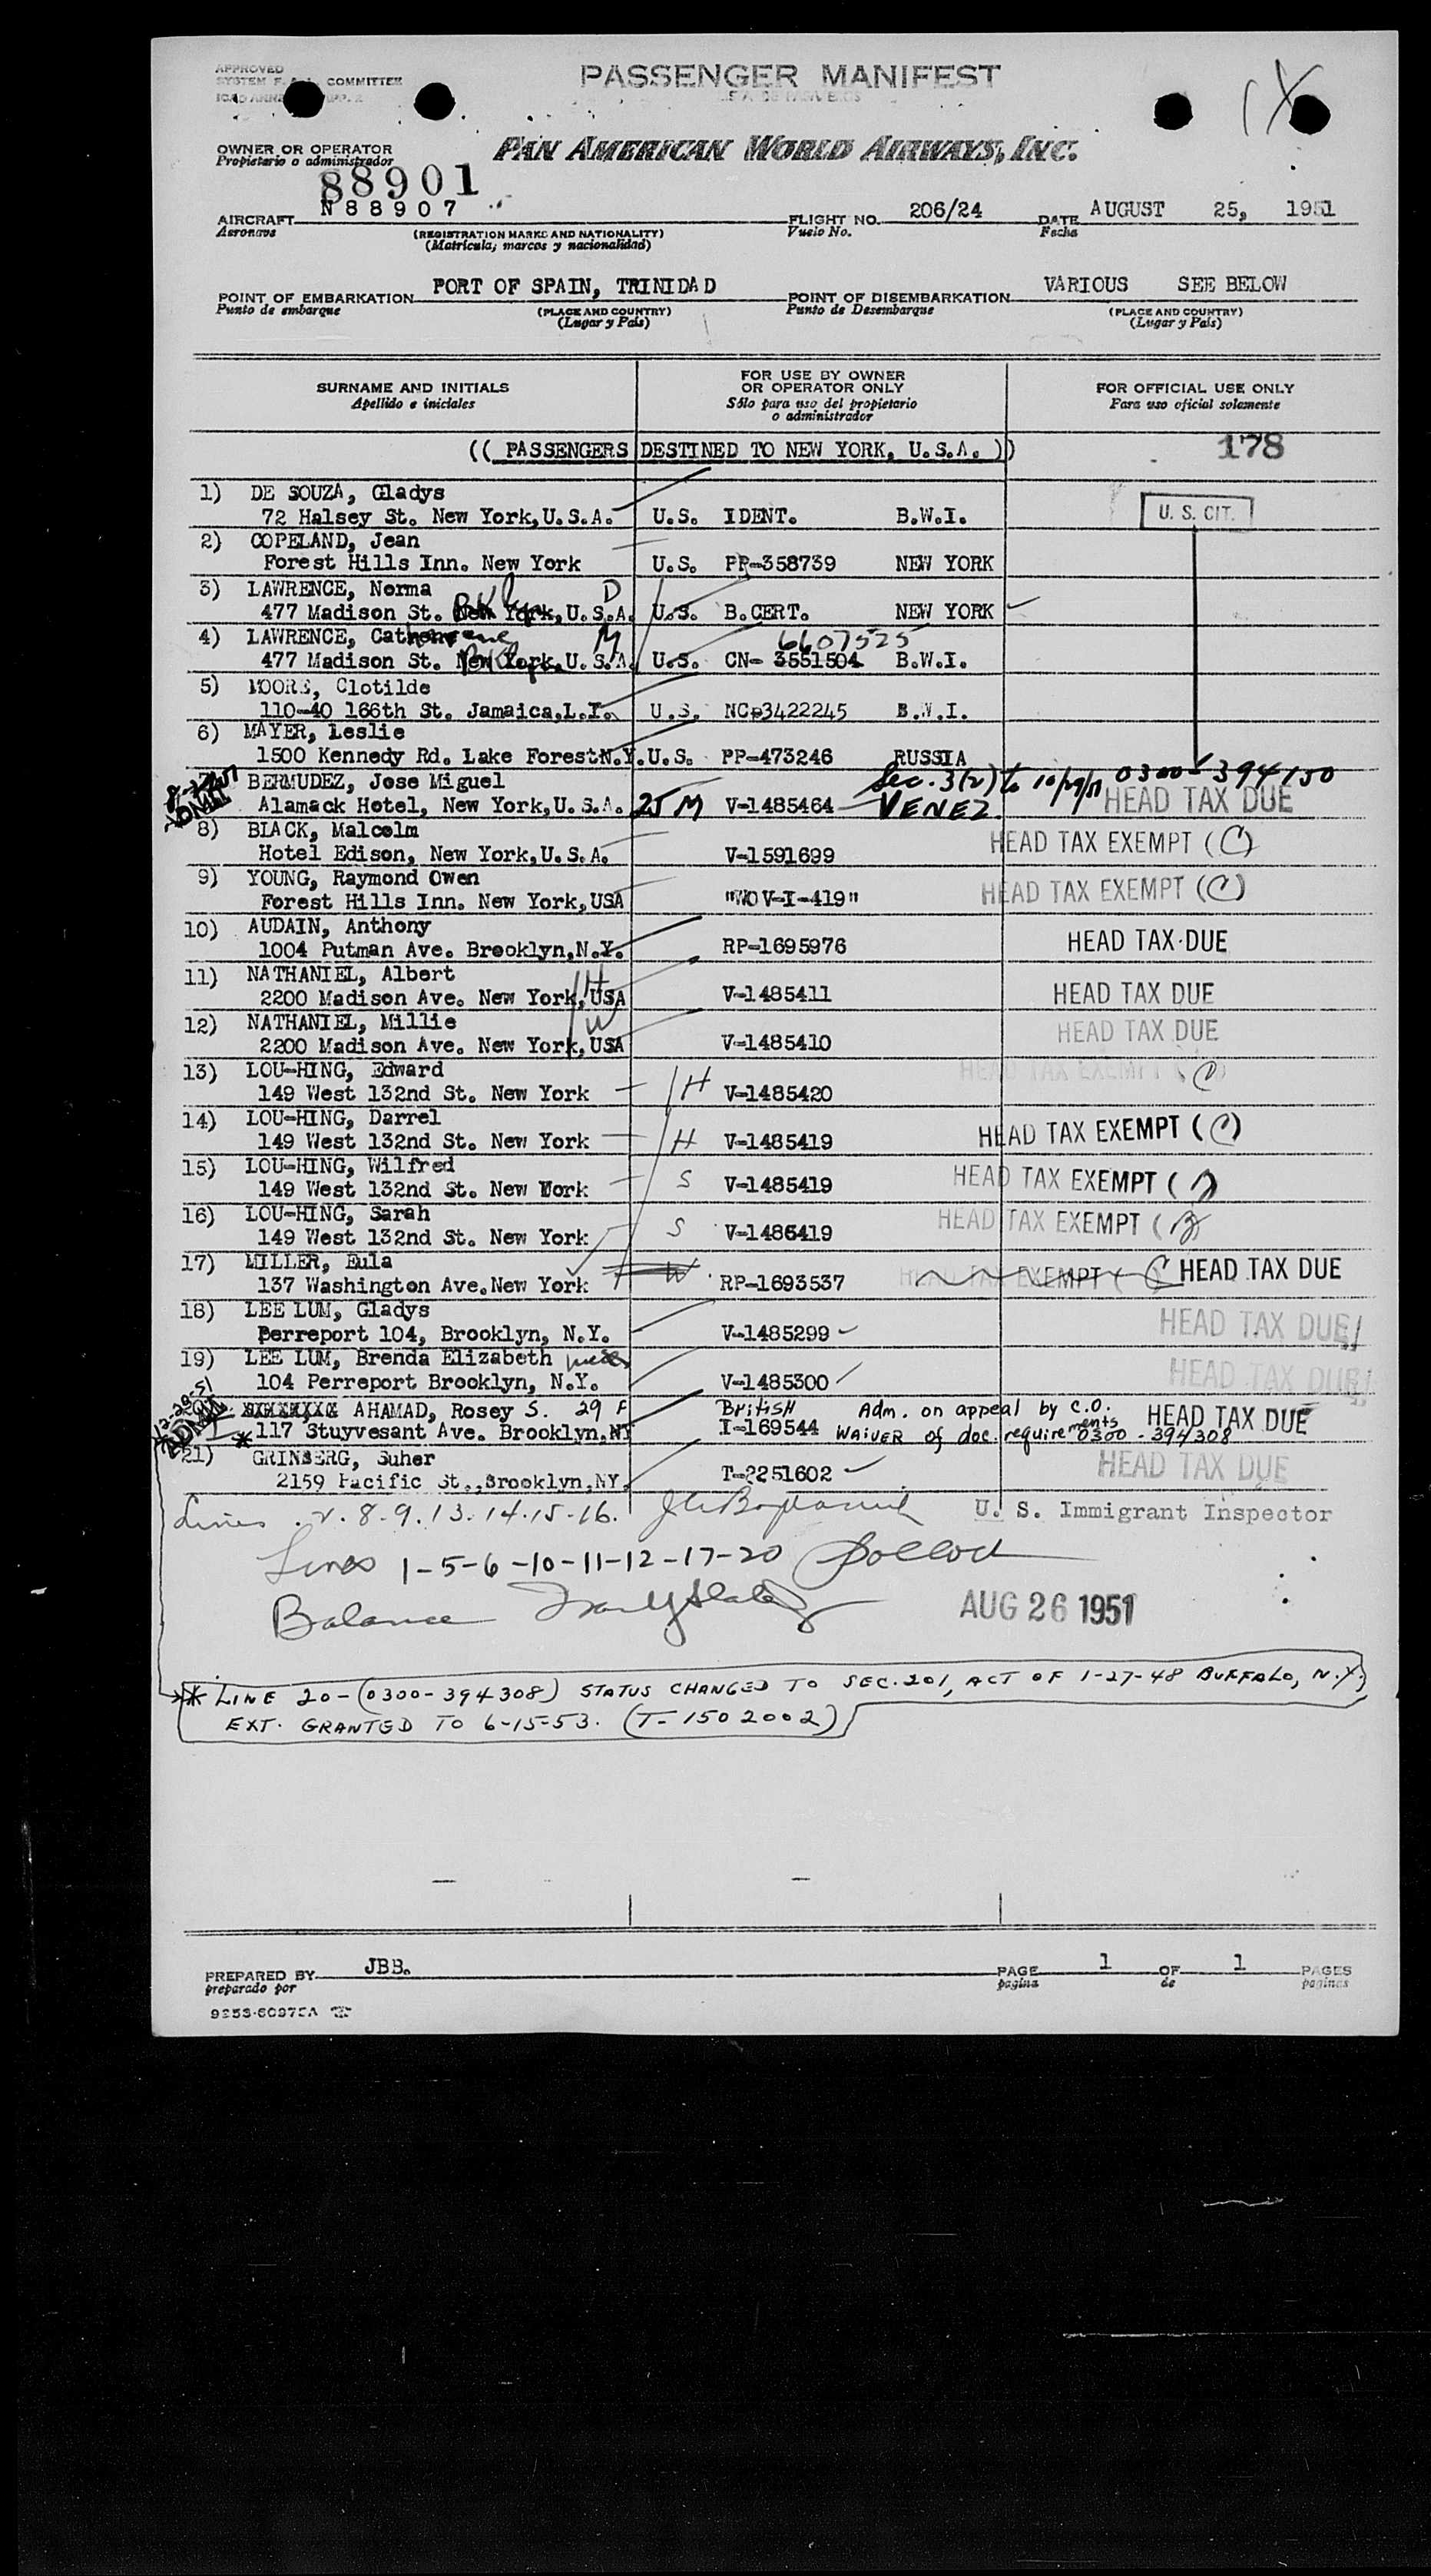 APPROVED
COMMITTEE
PASSENGER MANIFEST
OWNER OR OPERATOR
Propietario o administrador
PAN AMERICAN WORLD AIRWAYS, INC.
88901
AIRCRAFT N88907 FLIGHT NO. 206/24 DATE AUGUST 25, 1951
Aeronave (REGISTRATION MARKS AND NATIONALITY) Vuelo No. Fecha
(Matrícula; marcos y nacionalidad)
POINT OF EMBARKATION PORT OF SPAIN, TRINIDAD POINT OF DISEMBARKATION VARIOUS SEE BELOW
Punto de embarque (PLACE AND COUNTRY) Punto de Desembarque (PLACE AND COUNTRY)
(Lugar y País) (Lugar y País)
SURNAME AND INITIALS FOR USE BY OWNER OR OPERATOR ONLY FOR OFFICIAL USE ONLY
Apellido e iniciales Sólo para uso del propietario o administrador Para uso oficial solamente
(( PASSENGERS DESTINED TO NEW YORK, U.S.A. )) 178
1) DE SOUZA, Gladys
72 Halsey St. New York,U.S.A. U.S. IDENT. B.W.I. U. S. CIT.
2) COPELAND, Jean
Forest Hills Inn. New York U.S. PP-358739 NEW YORK
3) LAWRENCE, Norma D
477 Madison St. New York,U.S.A. U.S. B.CERT. NEW YORK
4) LAWRENCE, Catherine M 6607525
477 Madison St. New York,U.S.A. U.S. CN- 3551504 B.W.I.
5) MOORE, Clotilde
110-40 166th St. Jamaica,L.I. U.S. NC-3422245 B.W.I.
6) MAYER, Leslie
1500 Kennedy Rd. Lake Forest N.Y. U.S. PP-473246 RUSSIA
BERMUDEZ, Jose Miguel Sec. 3(2) to 10/29/51 0300-394150
Alamack Hotel, New York,U.S.A. 25 M V-1485464 VENEZ. HEAD TAX DUE
8) BLACK, Malcolm
Hotel Edison, New York,U.S.A. V-1591699 HEAD TAX EXEMPT (C)
9) YOUNG, Raymond Owen
Forest Hills Inn. New York,USA "WOV-I-419" HEAD TAX EXEMPT (C)
10) AUDAIN, Anthony
1004 Putman Ave. Brooklyn,N.Y. RP-1695976 HEAD TAX DUE
11) NATHANIEL, Albert H
2200 Madison Ave. New York,USA V-1485411 HEAD TAX DUE
12) NATHANIEL, Millie W
2200 Madison Ave. New York,USA V-1485410 HEAD TAX DUE
13) LOU-HING, Edward
149 West 132nd St. New York H V-1485420 HEAD TAX EXEMPT (C)
14) LOU-HING, Darrel
149 West 132nd St. New York H V-1485419 HEAD TAX EXEMPT (C)
15) LOU-HING, Wilfred
149 West 132nd St. New Work S V-1485419 HEAD TAX EXEMPT
16) LOU-HING, Sarah
149 West 132nd St. New York S V-1486419 HEAD TAX EXEMPT
17) MILLER, Eula
137 Washington Ave.New York W RP-1693537 HEAD TAX EXEMPT (C) HEAD TAX DUE
18) LEE LUM, Gladys
Perreport 104, Brooklyn, N.Y. V-1485299 HEAD TAX DUE
19) LEE LUM, Brenda Elizabeth
104 Perreport Brooklyn, N.Y. V-1485300 HEAD TAX DUE
12-20-51 AHAMAD, Rosey S. 29 F British Adm. on appeal by C.O. HEAD TAX DUE
*117 Stuyvesant Ave. Brooklyn,NY I-169544 WAIVER of doc. requirements 0300-394308
21) GRINBERG, Suher
2159 Pacific St.,Brooklyn,NY. T-2251602 HEAD TAX DUE
Lines 2. 8-9. 13. 14. 15-16. U. S. Immigrant Inspector
Lines 1-5-6-10-11-12-17-20
Balance AUG 26 1951
* LINE 20-(0300-394308) STATUS CHANGED TO SEC.201, ACT OF 1-27-48 BUFFALO, N.Y.
EXT. GRANTED TO 6-15-53. (T-1502002)
PREPARED BY JBB. PAGE 1 OF 1 PAGES
preparado por pagina de paginas